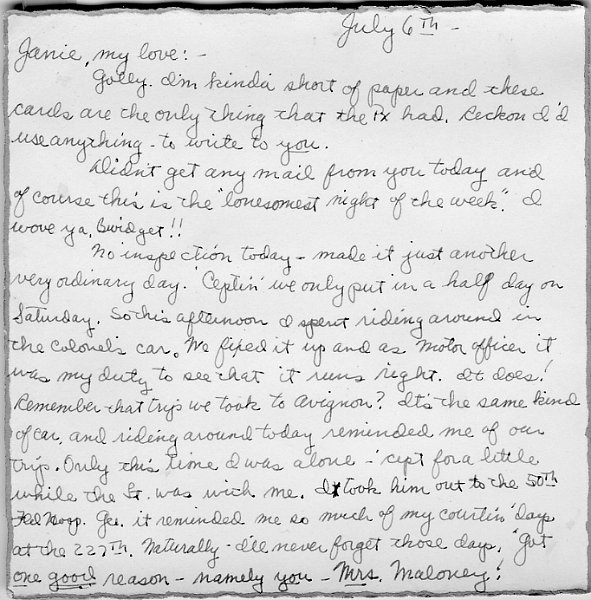 July 6TH -
Janie, my love: -
Golly. I'm kinda short of paper and these
cards are the only thing that the PX had. Reckon I'd
use anything - to write to you.
Didn't get any mail from you today and
of course this is the "lonesomest night of the week". I
wove ya, Bwidget!!
No inspection today - made it just another
very ordinary day. 'Ceptin' we only put in a half day on
Saturday. So this afternoon I spent riding around in
the Colonel's car. We fixed it up and as Motor officer it
was my duty to see that it runs right. It does!
Remember that trip we took to Avignon? It's the same kind
of car, and riding around today reminded me of our
trip. Only this time I was alone - 'cept for a little
while the Lt. was with me. I took him out to the 50th
Fld Hosp. Gee, it reminded me so much of my courtin' days
at the 227TH. Naturally - I'll never forget those days. 'Got
one good reason - namely you - Mrs. Maloney!